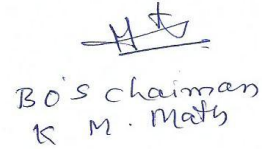 BO'S Chairman
K M. Maths